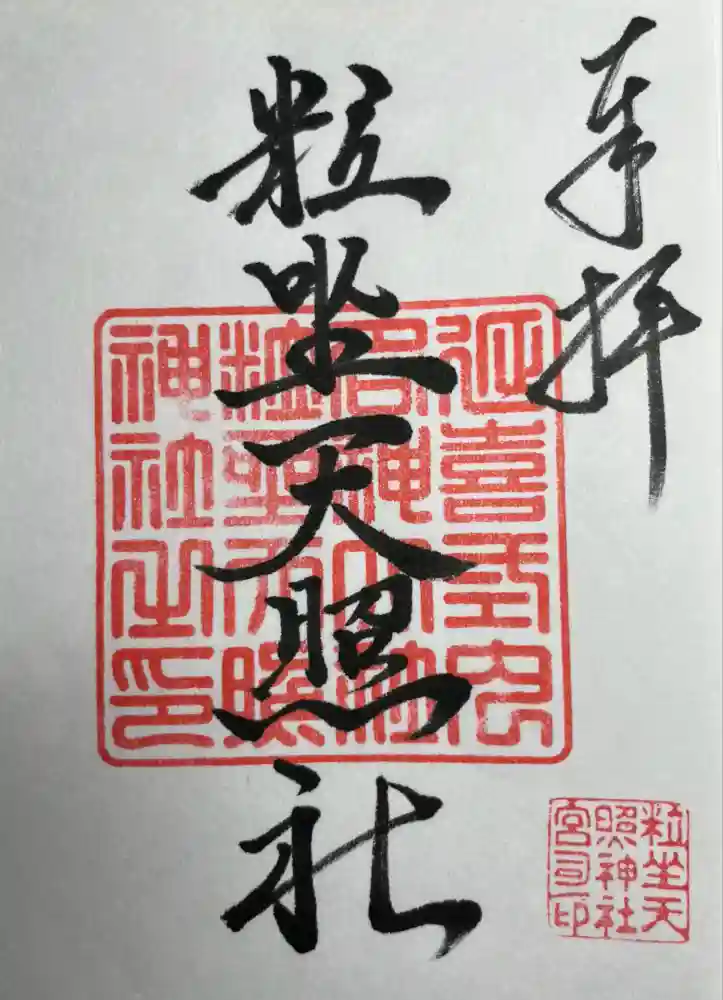 奉拝
粒坐天照社
延喜式内
名神大社
粒坐天照
神社之印
粒坐天
照神社
宮司印